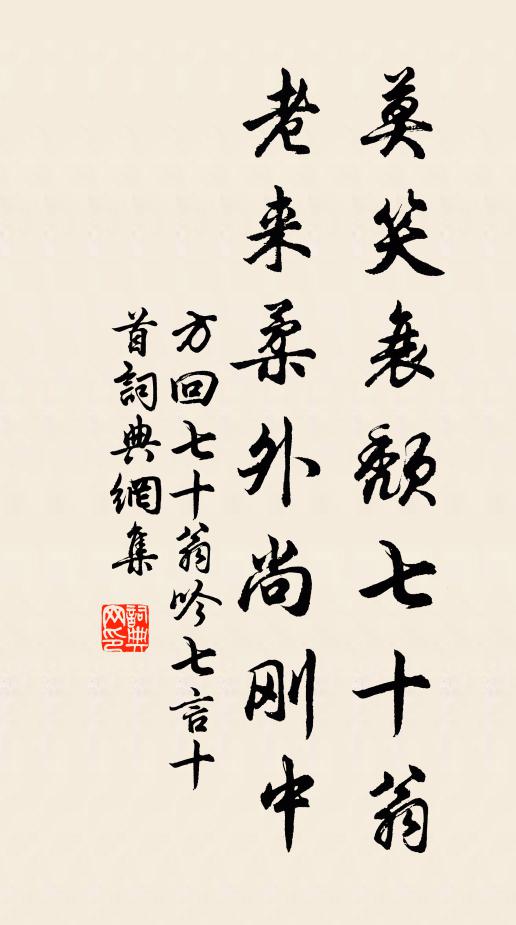 莫笑衰颓七十翁
老来柔外尚刚中
方回七十翁吟七言十
首詞典網集
詞典
网印